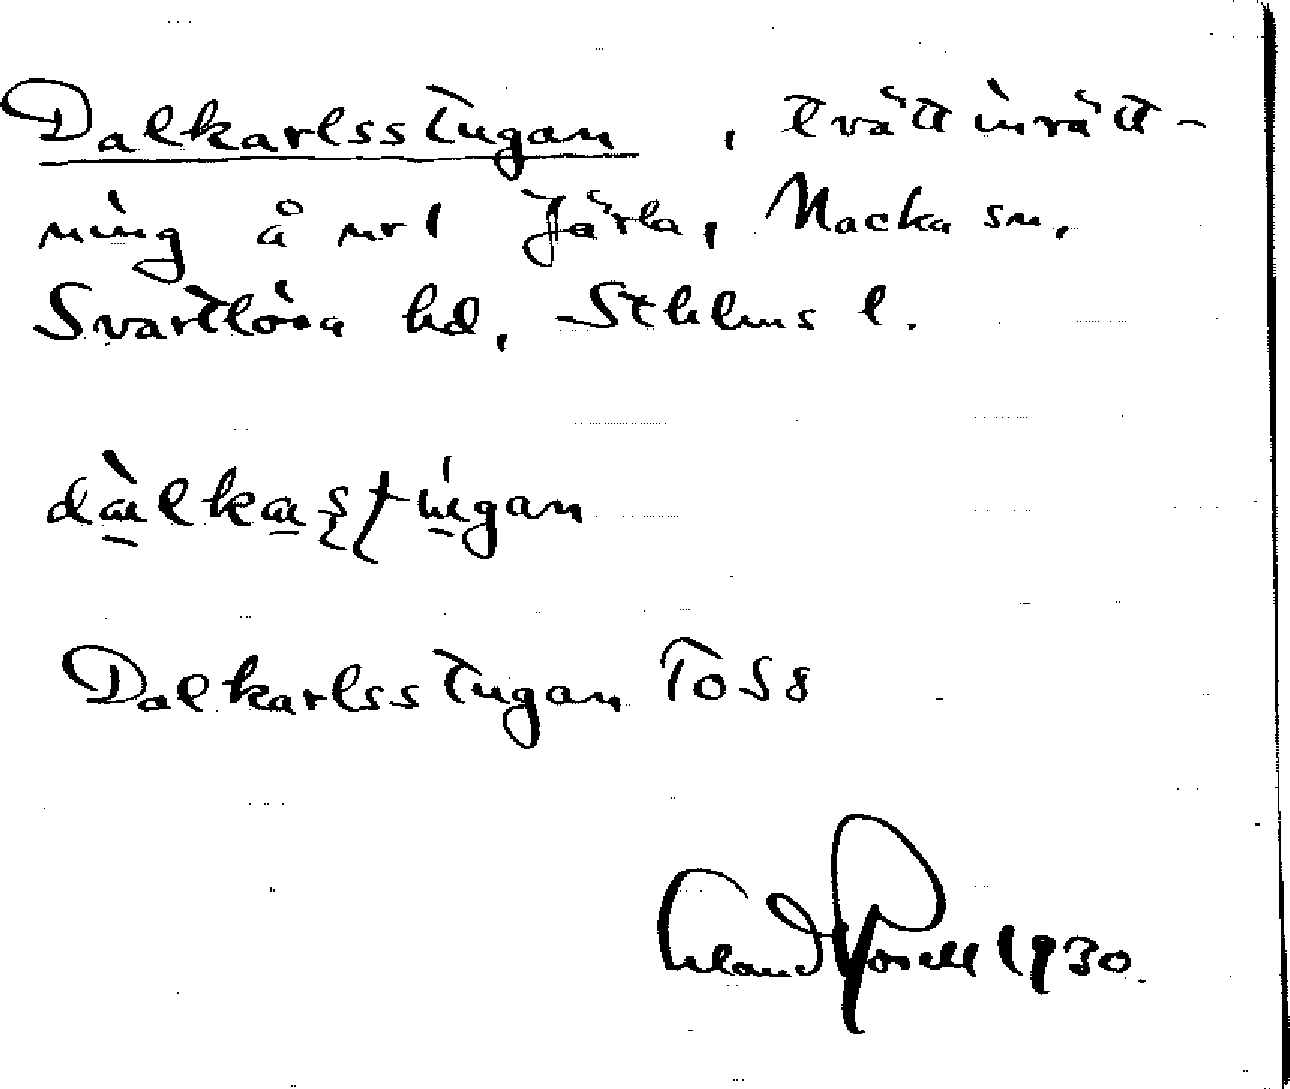 Dalkarlsstugan, tvättinrätt-
ning å nr 1 Järla, Nacka sn,
Svartlösa hd, Sthlms l.
Dalkarlsstugan To S 8
Erland Rosell 1930.